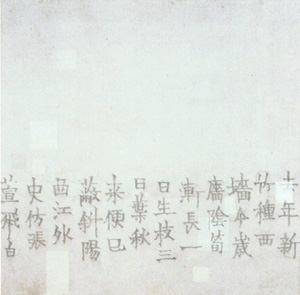 去年新
竹種西
墻今歲
廣陰筍
漸長一
日生枝三
日葉秋
來便已
蔽斜陽
西江外
史仿張
萱飛白